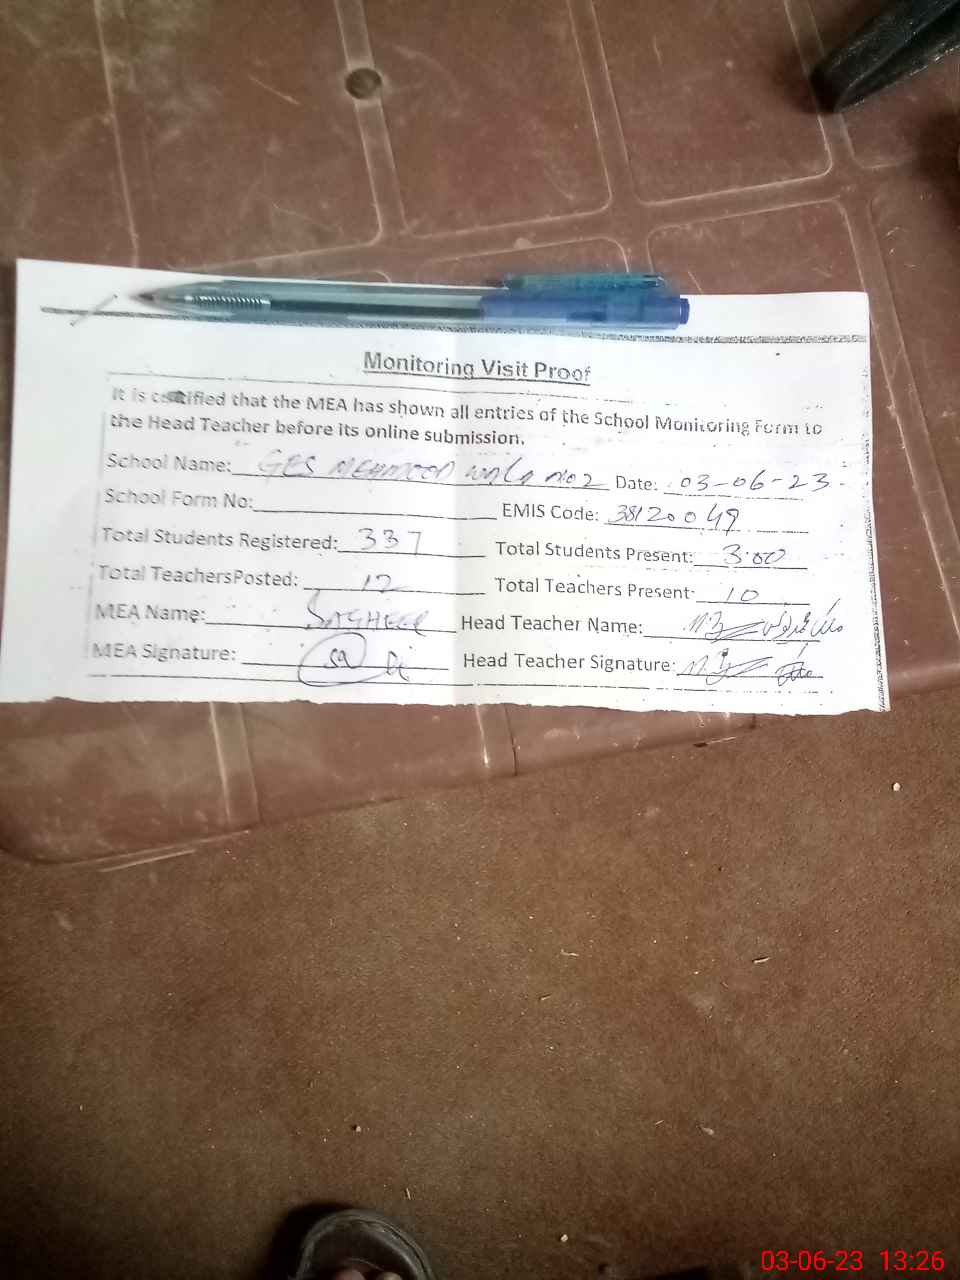 Monitoring Visit Proof
It is certified that the MEA has shown all entries of the School Monitoring Form to
the Head Teacher before its online submission.
School Name: GES MEHMOOD wala no 2 Date: 03-06-23
School Form No: EMIS Code: 38120049
Total Students Registered: 337 Total Students Present: 300
Total TeachersPosted: 12 Total Teachers Present: 10
MEA Name: SAGHEER Head Teacher Name:
MEA Signature: Head Teacher Signature:
03-06-23 13:26